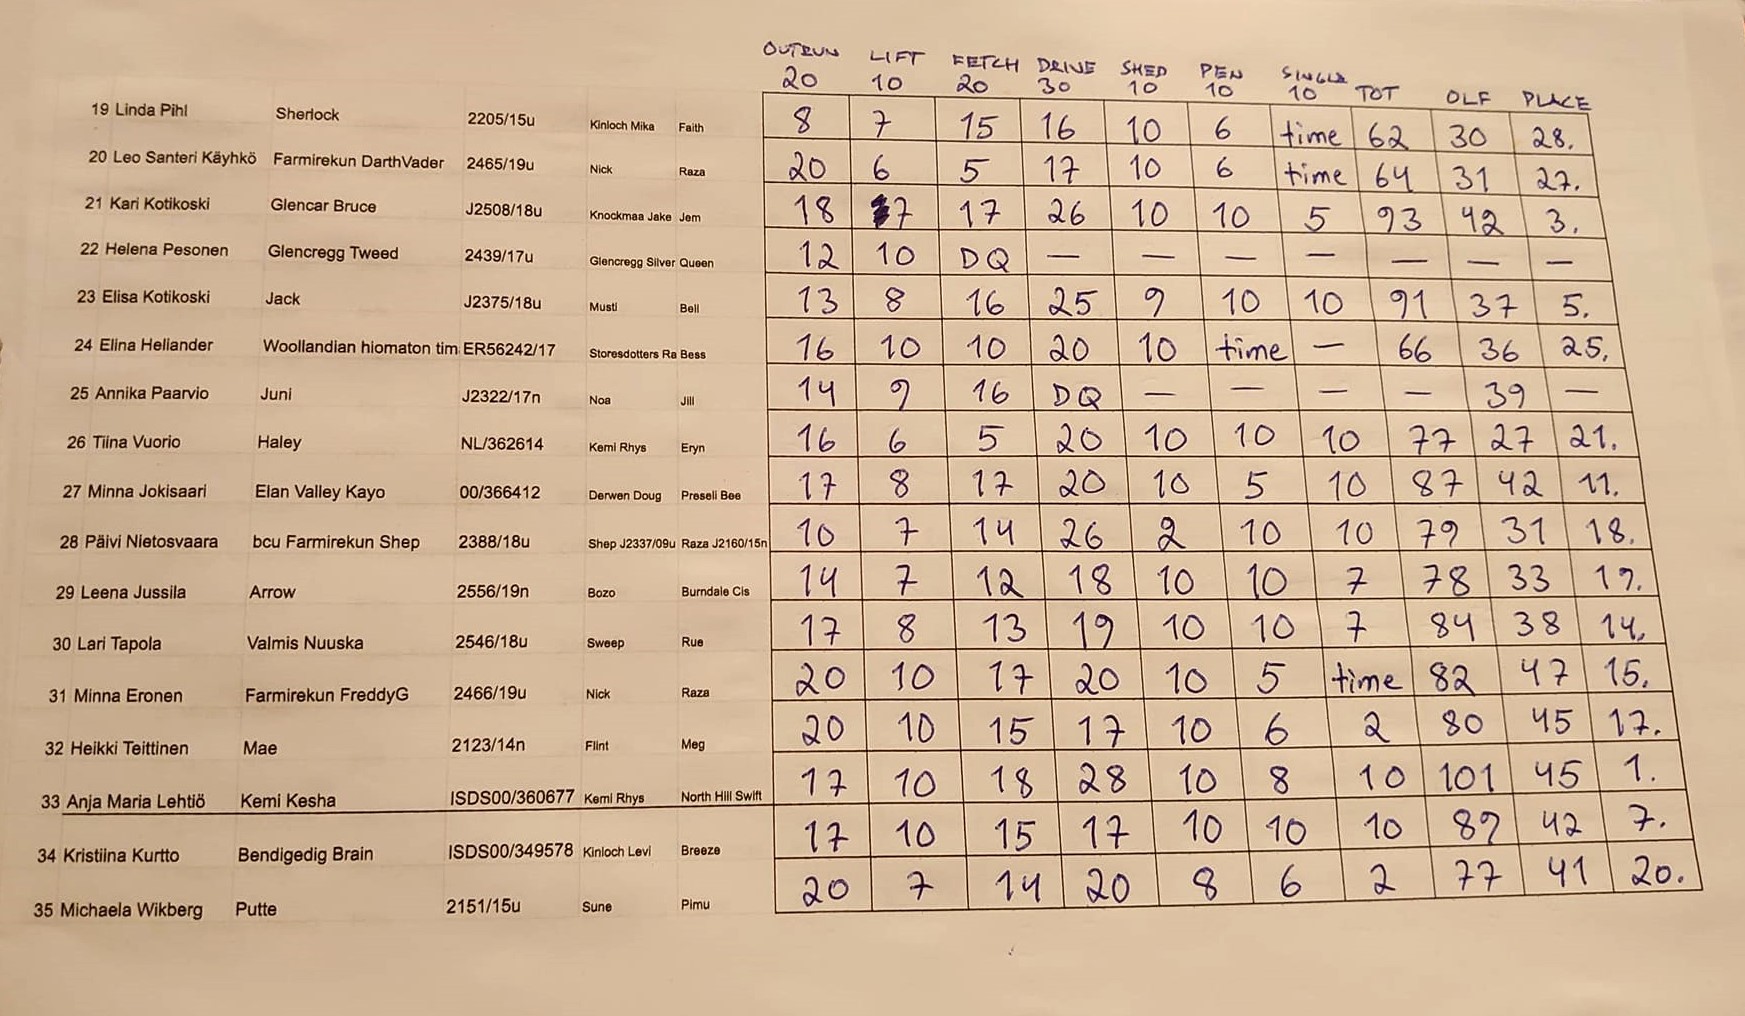 OUTRUN LIFT FETCH DRIVE SHED PEN SINGLE TOT OLF PLACE
20 10 20 30 10 10 10
19 Linda Pihl Sherlock 2205/15u Kinloch Mika Faith 8 7 15 16 10 6 time 62 30 28.
20 Leo Santeri Käyhkö Farmirekun DarthVader 2465/19u Nick Raza 20 6 5 17 10 6 time 64 31 27.
21 Kari Kotikoski Glencar Bruce J2508/18u Knockmaa Jake Jem 18 7 17 26 10 10 5 93 42 3.
22 Helena Pesonen Glencregg Tweed 2439/17u Glencregg Silver Queen 12 10 DQ — — — — — — —
23 Elisa Kotikoski Jack J2375/18u Musti Bell 13 8 16 25 9 10 10 91 37 5.
24 Elina Heliander Woollandian hiomaton tim ER56242/17 Storesdotters Ra Bess 16 10 10 20 10 time — 66 36 25.
25 Annika Paarvio Juni J2322/17n Noa Jill 14 9 16 DQ — — — — 39 —
26 Tiina Vuorio Haley NL/362614 Kemi Rhys Eryn 16 6 5 20 10 10 10 77 27 21.
27 Minna Jokisaari Elan Valley Kayo 00/366412 Derwen Doug Preseli Bee 17 8 17 20 10 5 10 87 42 11.
28 Päivi Nietosvaara bcu Farmirekun Shep 2388/18u Shep J2337/09u Raza J2160/15n 10 7 14 26 2 10 10 79 31 18.
29 Leena Jussila Arrow 2556/19n Bozo Burndale Cis 14 7 12 18 10 10 7 78 33 19.
30 Lari Tapola Valmis Nuuska 2546/18u Sweep Rue 17 8 13 19 10 10 7 84 38 14.
31 Minna Eronen Farmirekun FreddyG 2466/19u Nick Raza 20 10 17 20 10 5 time 82 47 15.
32 Heikki Teittinen Mae 2123/14n Flint Meg 20 10 15 17 10 6 2 80 45 17.
33 Anja Maria Lehtiö Kemi Kesha ISDS00/360677 Kemi Rhys North Hill Swift 17 10 18 28 10 8 10 101 45 1.
34 Kristiina Kurtto Bendigedig Brain ISDS00/349578 Kinloch Levi Breeze 17 10 15 17 10 10 10 89 42 7.
35 Michaela Wikberg Putte 2151/15u Sune Pimu 20 7 14 20 8 6 2 77 41 20.